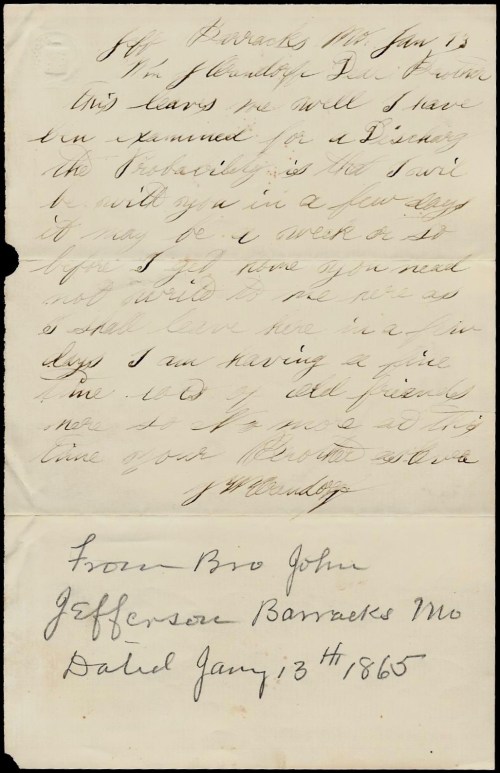 Jeff Barracks Mo. Jan 13
Wm J Dear Brother
this leaves me well I have
ben examined for a Discharg
the Probability is that I will
be with you in a few days
it may be a week or so
before I get home you need
not write to me here as
I shall leave here in a few
days I am having a fine
time lots of old friends
here so No more at this
time your Brother as Ever
J W
From Bro John
Jefferson Barracks Mo
Dated Jany 13th 1865